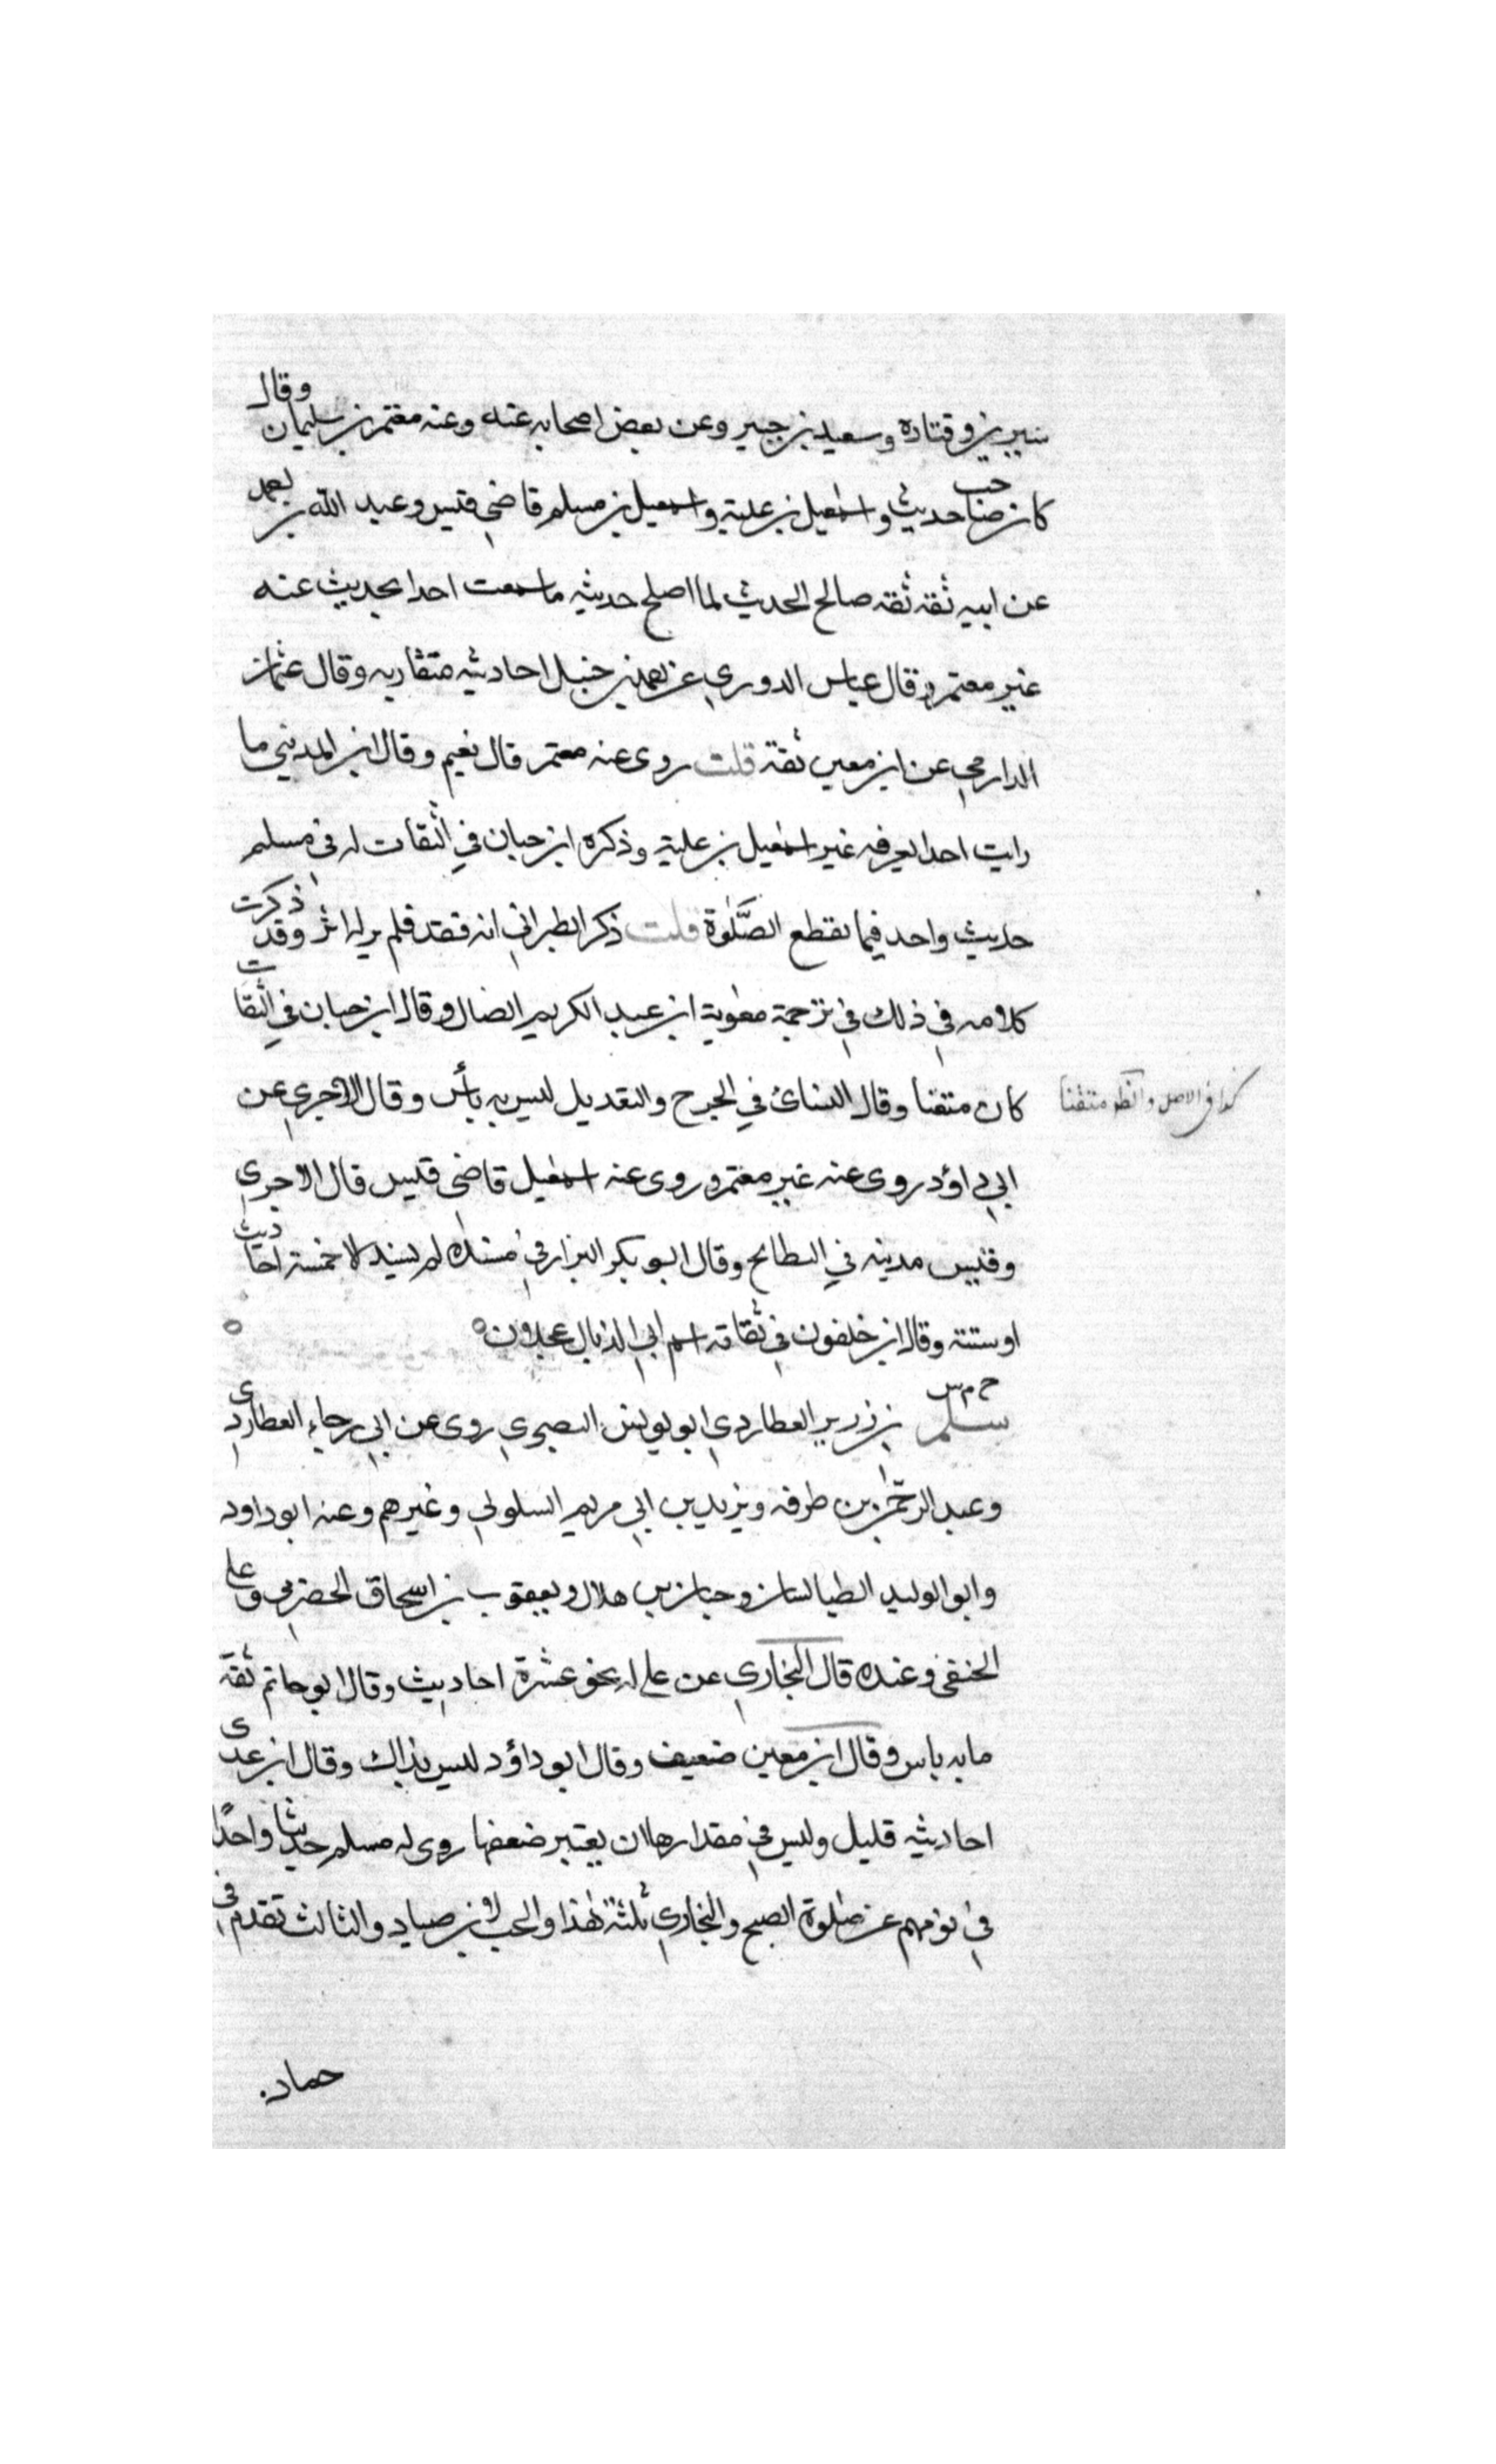 سيرين وقتادة وسعيد بن جبير وعن بعض اصحابه عنه وعنه معتمر بن سليمان وقال
كان صاحب حديث واسمعيل بن علية واسمعيل بن مسلم قاضي قيس وعبد الله بن احمد
عن ابيه ثقة ثقة صالح الحديث لما اصلح حديثه ما سمعت احدا يحديث عنه
غير معتمر وقال عباس الدوري عن احمد بن حنبل احاديثه متقاربه وقال عثمان
الدارمي عن ابن معين ثقة قلت روى عنه معتمر قال نعيم وقال ابن المديني ما
رايت احدا يعرفه غير اسمعيل بن علية وذكره ابن حبان في الثقات له في مسلم
حديث واحد فيما يقطع الصلوة قلت ذكر الطبراني انه فقد فلم ير له اثر وقد ذكرت
كلامه في ذلك في ترجمة معوية ابن عبد الكريم الضال وقال ابن حبان في الثقات
كان متقنا وقال النسائ في الجرح والتعديل ليس به بأس وقال الآجري عن
كذا في الاصل وانظر متقنا
ابي داؤد روى عنه غير معتمر وروى عنه اسمعيل قاضي قيس قال الاجري
وقيس مدينه في البطايح وقال ابو بكر البزار في مسنده لم يسند الا خمسة احاديث
او ستة وقال ابن خلفون في ثقاته اسم ابي الذيال عجلان ه
خ م س
سلم بن زرير العطاردي ابو يونس البصري روى عن ابي رجاء العطاردي
وعبد الرحمن بن طرفه ويزيد بن ابي مريم السلولي وغيرهم وعنه ابو داود
وابو الوليد الطيالسان وحبان بن هلال ويعقوب بن اسحاق الحضرمي وعلي
الحنفي وعنده قال البخاري عن علي له نحو عشرة احاديث وقال ابو حاتم ثقة
ما به باس وقال ابن معين ضعيف وقال ابو داؤد ليس بذاك وقال ابن عدى
احاديثه قليل وليس في مقدارها ان يعتبر ضعفها روى له مسلم حديثا واحدا
في نومهم عن صلوة الصبح والبخاري ثلثة هذا والحب لابن صياد والثالث تقدم في
حماد.